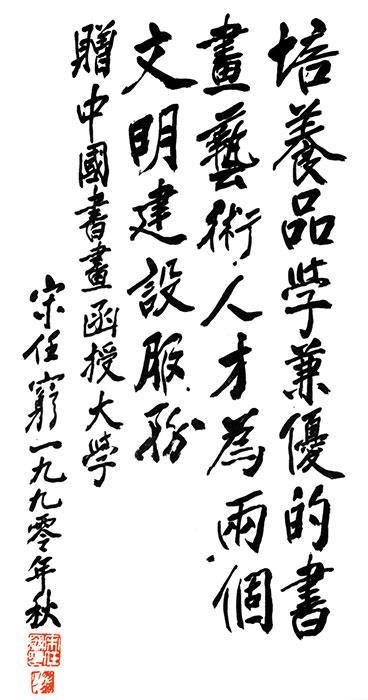 培養品学兼優的書
畫藝術人才為兩個
文明建設服務
贈中國書畫函授大学
宋任窮一九九零年秋